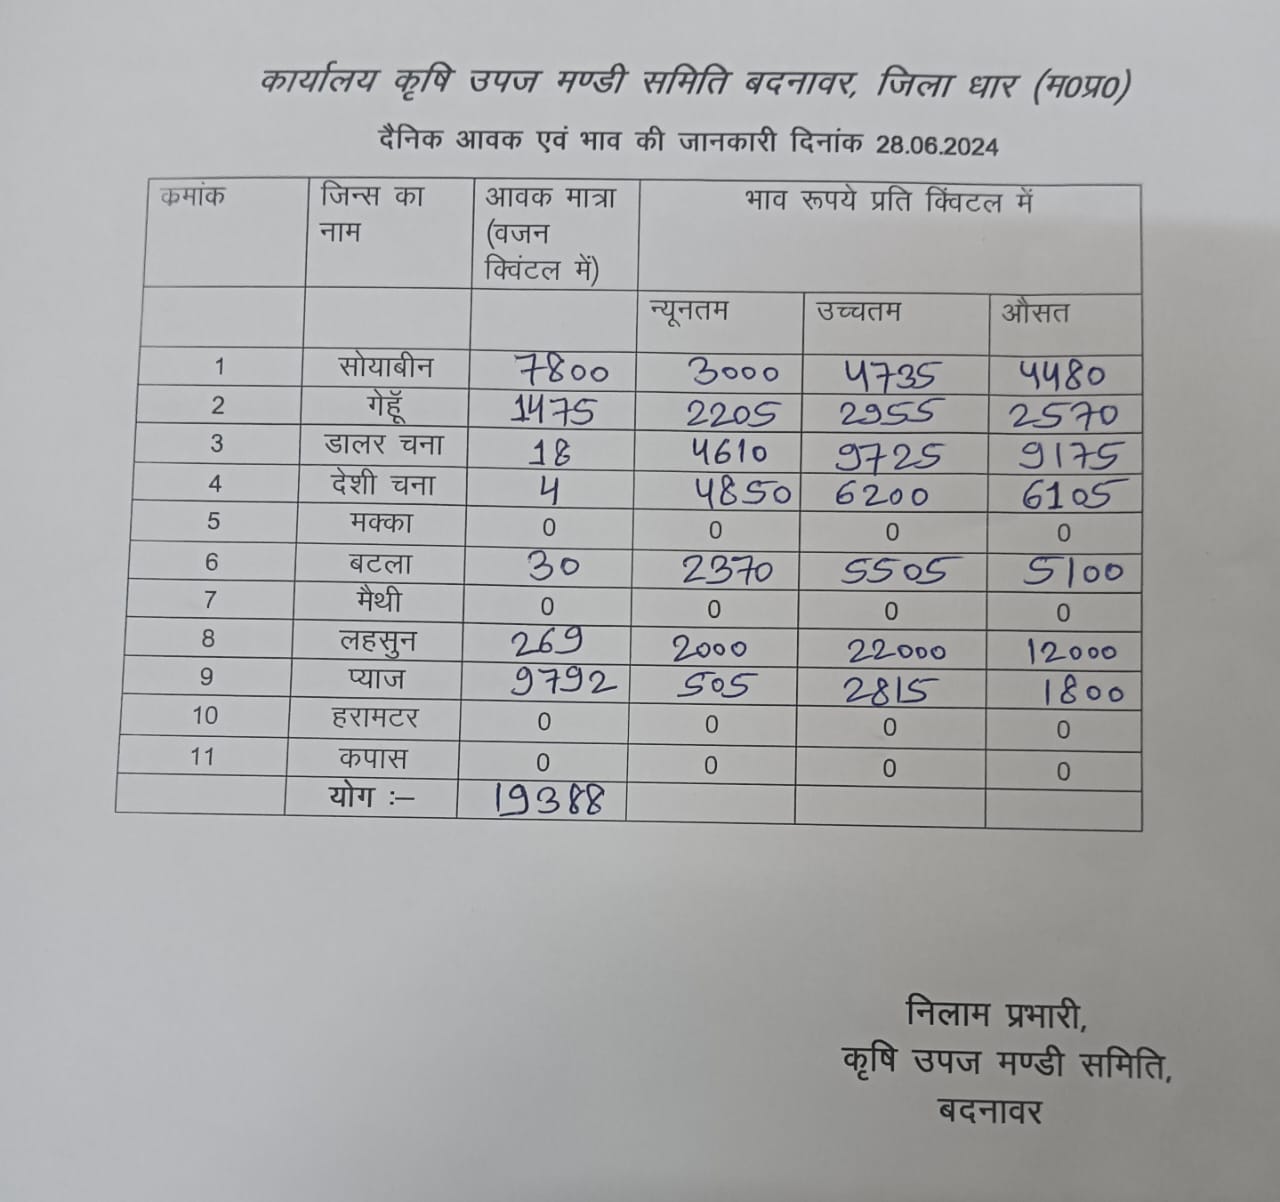 कार्यालय कृषि उपज मण्डी समिति बदनावर, जिला धार (म0प्र0)
दैनिक आवक एवं भाव की जानकारी दिनांक 28.06.2024
कमांक जिन्स का नाम आवक मात्रा (वजन क्विंटल में) भाव रूपये प्रति क्विंटल में
न्यूनतम उच्चतम औसत
1 सोयाबीन 7800 3000 4735 4480
2 गेहूॅ 1475 2205 2955 2570
3 डालर चना 18 4610 9725 9175
4 देशी चना 4 4850 6200 6105
5 मक्का 0 0 0 0
6 बटला 30 2370 5505 5100
7 मैथी 0 0 0 0
8 लहसुन 269 2000 22000 12000
9 प्याज 9792 505 2815 1800
10 हरामटर 0 0 0 0
11 कपास 0 0 0 0
योग :– 19388
निलाम प्रभारी,
कृषि उपज मण्डी समिति,
बदनावर